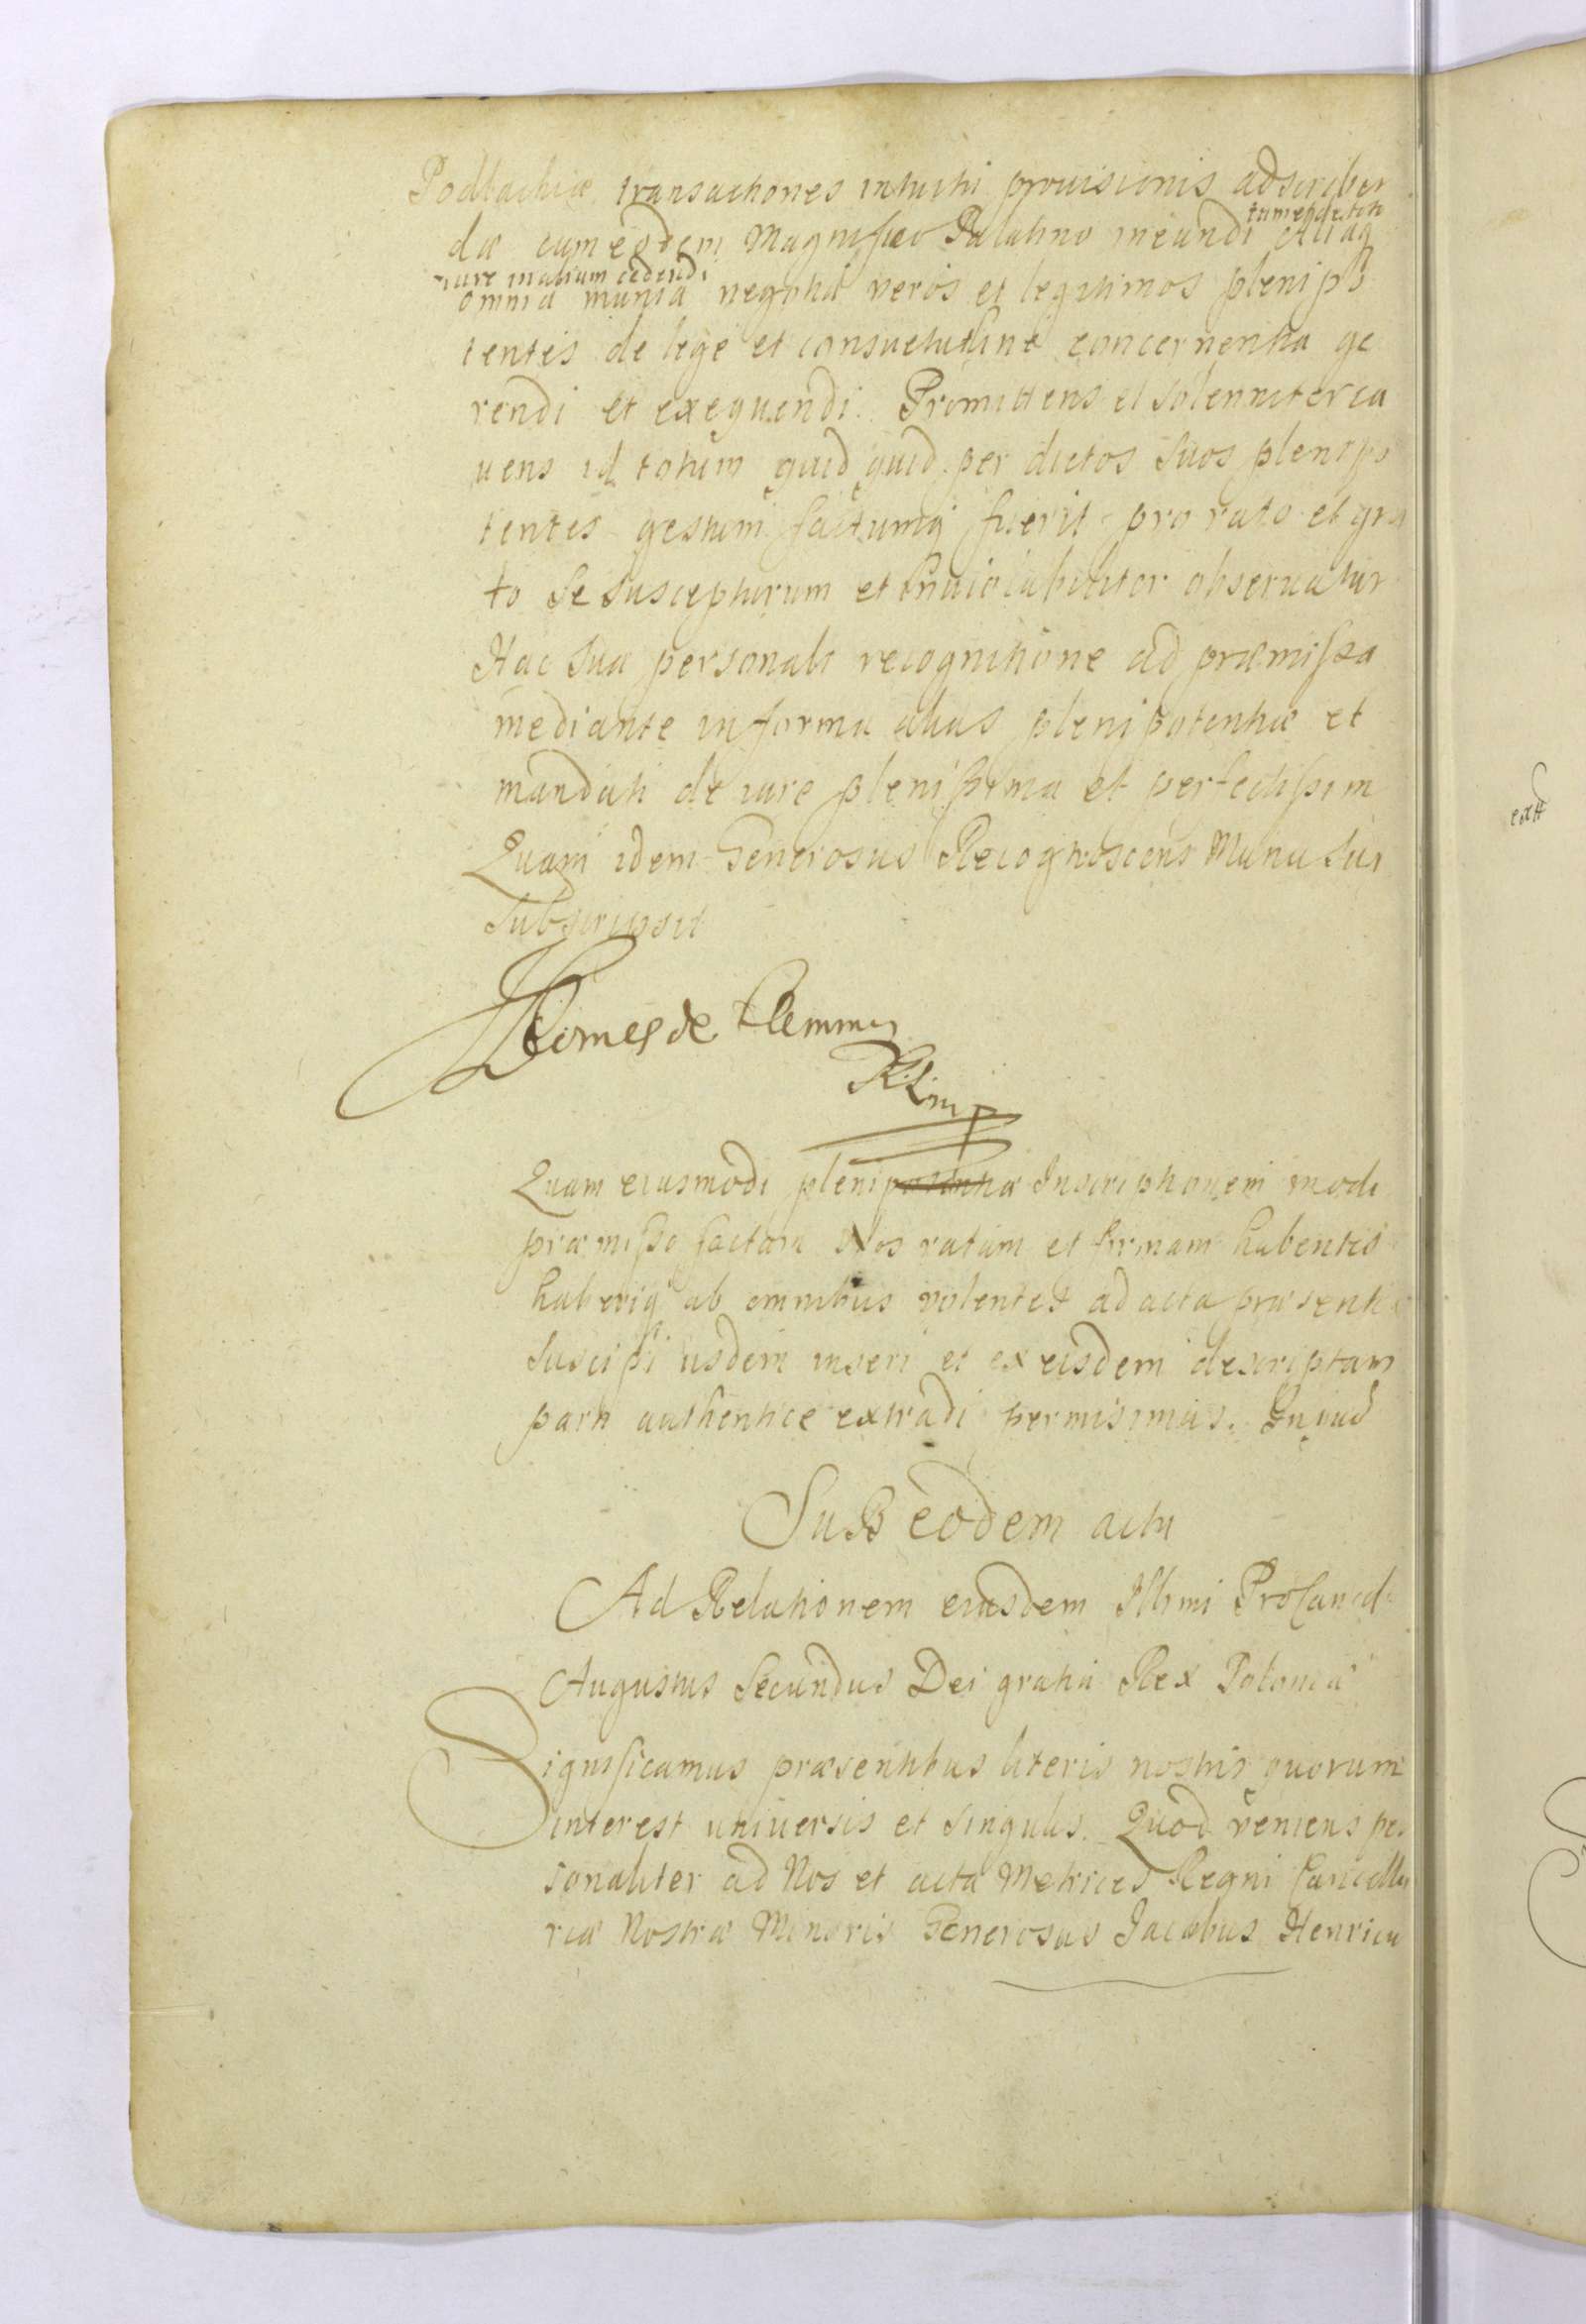 Podlachiæ transactiones intuitu prouisionis adscriben
tum
dæ cum eodem Magnifico Palatino ineundi Aliaq
iure mutuum cedendi
omnia munia negotia veros et legitimos plenipo
tentes de lege et consuetudine concernentia ge
rendi et exequendi. Promittens et solenniter ca
uens id totum quidquid per dictos suos plenipo
tentes gestum factumq fuerit pro rato et gra
to se suscepturum et inuiolabiliter obseruatur
Hac sua personali recognitione ad præmissa
mediante in forma alias plenipotentiæ et
mandati de iure plenissima et perfectissim
Quam idem Generosus Recognoscens Manu sua
subscripsit
Comes de Flemming
Quam eiusmodi plenipotentiæ Inscriptionem modo
præmisso factam Nos ratam et firmam habentes
haberiq ab omnibus volentes ad acta præsentia
suscipi iisdem inseri et ex eisdem descriptam
parti authentice extradi permisimus. In cuius
Sub eodem actu
Ad Relationem eiusdem Illmi ProCancel
Augustus Secundus Dei gratia Rex Poloniæ
Significamus præsentibus literis nostris quorum
interest uniuersis et singulis. Quod veniens per
sonaliter ad Nos et acta Metrices Regni Cancella
riæ Nostræ Minoris Generosus Jacobus Henricu
extt